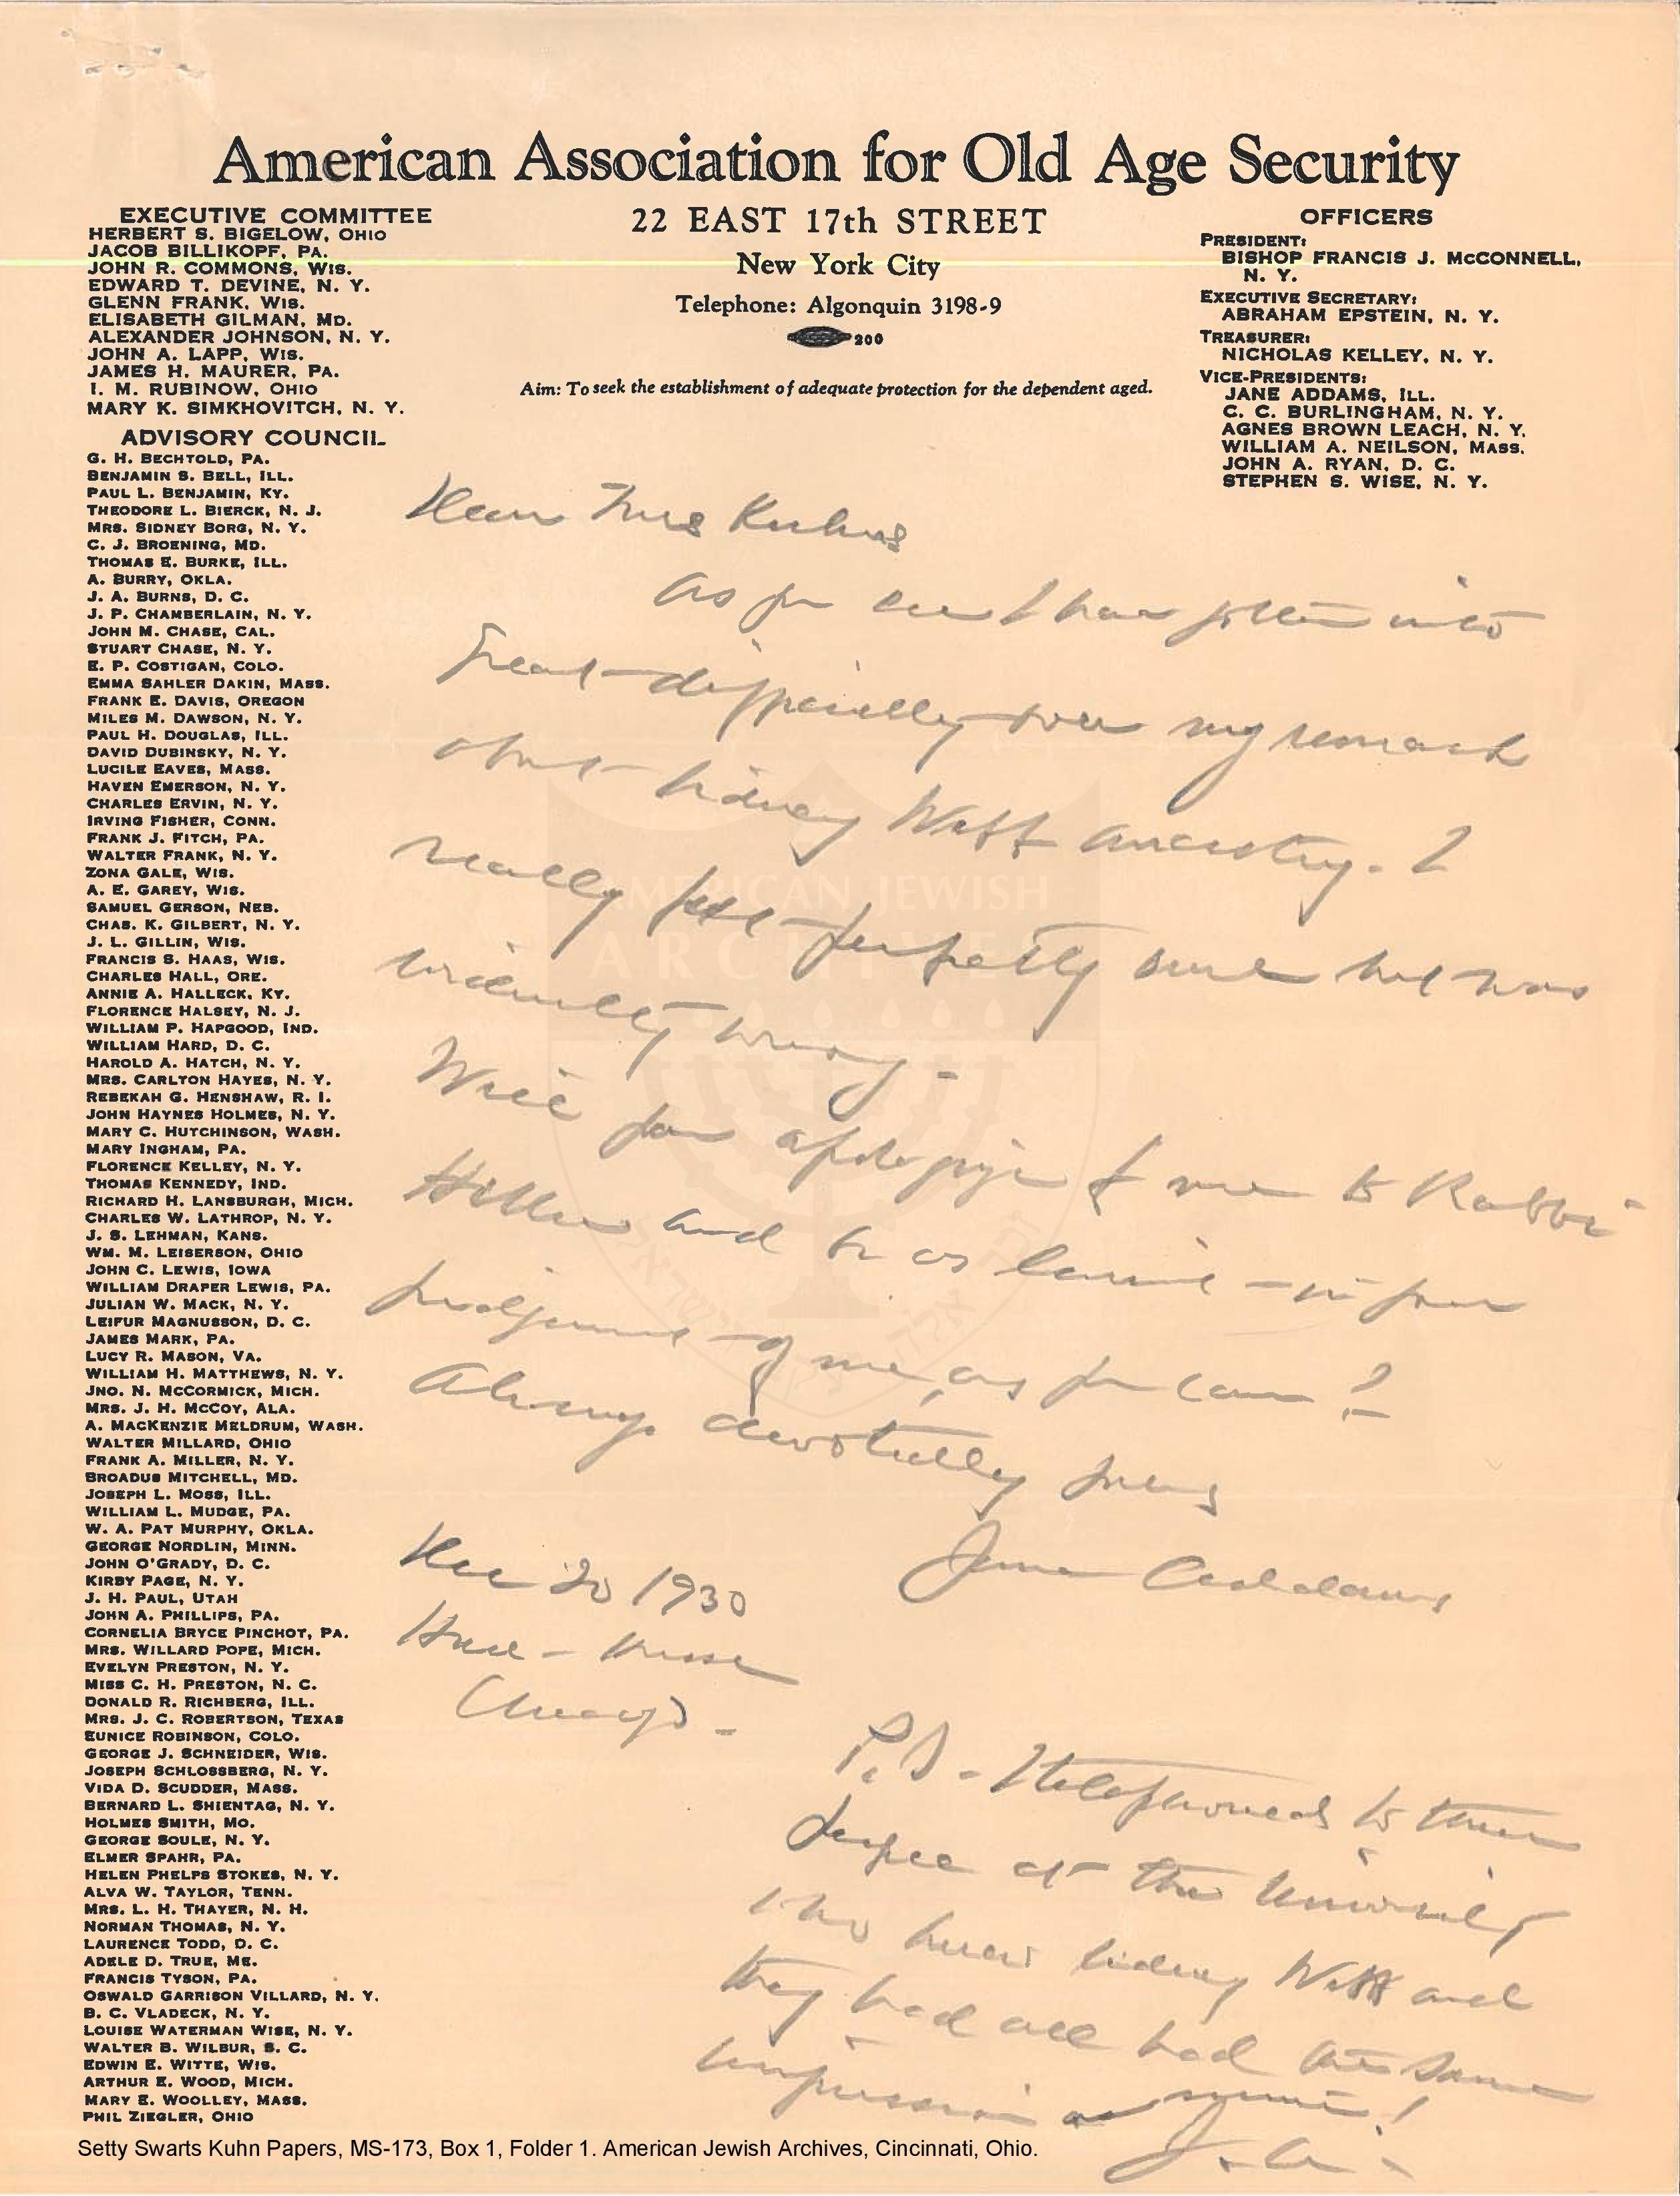 American Association for Old Age Security
22 EAST 17th STREET
New York City
Telephone: Algonquin 3198-9
200
Aim: To seek the establishment of adequate protection for the dependent aged.
EXECUTIVE COMMITTEE
HERBERT S. BIGELOW, OHIO
JACOB BILLIKOPF, PA.
JOHN R. COMMONS, WIS.
EDWARD T. DEVINE, N. Y.
GLENN FRANK, WIS.
ELISABETH GILMAN, MD.
ALEXANDER JOHNSON, N. Y.
JOHN A. LAPP, WIS.
JAMES H. MAURER, PA.
I. M. RUBINOW, OHIO
MARY K. SIMKHOVITCH, N. Y.
ADVISORY COUNCIL
G. H. BECHTOLD, PA.
BENJAMIN S. BELL, ILL.
PAUL L. BENJAMIN, KY.
THEODORE L. BIERCK, N. J.
MRS. SIDNEY BORG, N. Y.
C. J. BROENING, MD.
THOMAS E. BURKE, ILL.
A. BURRY, OKLA.
J. A. BURNS, D. C.
J. P. CHAMBERLAIN, N. Y.
JOHN M. CHASE, CAL.
STUART CHASE, N. Y.
E. P. COSTIGAN, COLO.
EMMA SAHLER DAKIN, MASS.
FRANK E. DAVIS, OREGON
MILES M. DAWSON, N. Y.
PAUL H. DOUGLAS, ILL.
DAVID DUBINSKY, N. Y.
LUCILE EAVES, MASS.
HAVEN EMERSON, N. Y.
CHARLES ERVIN, N. Y.
IRVING FISHER, CONN.
FRANK J. FITCH, PA.
WALTER FRANK, N. Y.
ZONA GALE, WIS.
A. E. GAREY, WIS.
SAMUEL GERSON, NEB.
CHAS. K. GILBERT, N. Y.
J. L. GILLIN, WIS.
FRANCIS S. HAAS, WIS.
CHARLES HALL, ORE.
ANNIE A. HALLECK, KY.
FLORENCE HALSEY, N. J.
WILLIAM P. HAPGOOD, IND.
WILLIAM HARD, D. C.
HAROLD A. HATCH, N. Y.
MRS. CARLTON HAYES, N. Y.
REBEKAH G. HENSHAW, R. I.
JOHN HAYNES HOLMES, N. Y.
MARY C. HUTCHINSON, WASH.
MARY INGHAM, PA.
FLORENCE KELLEY, N. Y.
THOMAS KENNEDY, IND.
RICHARD H. LANSBURGH, MICH.
CHARLES W. LATHROP, N. Y.
J. S. LEHMAN, KANS.
WM. M. LEISERSON, OHIO
JOHN C. LEWIS, IOWA
WILLIAM DRAPER LEWIS, PA.
JULIAN W. MACK, N. Y.
LEIFUR MAGNUSSON, D. C.
JAMES MARK, PA.
LUCY R. MASON, VA.
WILLIAM H. MATTHEWS, N. Y.
JNO. N. MCCORMICK, MICH.
MRS. J. H. MCCOY, ALA.
A. MACKENZIE MELDRUM, WASH.
WALTER MILLARD, OHIO
FRANK A. MILLER, N. Y.
BROADUS MITCHELL, MD.
JOSEPH L. MOSS, ILL.
WILLIAM L. MUDGE, PA.
W. A. PAT MURPHY, OKLA.
GEORGE NORDLIN, MINN.
JOHN O'GRADY, D. C.
KIRBY PAGE, N. Y.
J. H. PAUL, UTAH
JOHN A. PHILLIPS, PA.
CORNELIA BRYCE PINCHOT, PA.
MRS. WILLARD POPE, MICH.
EVELYN PRESTON, N. Y.
MISS C. H. PRESTON, N. C.
DONALD R. RICHBERG, ILL.
MRS. J. C. ROBERTSON, TEXAS
EUNICE ROBINSON, COLO.
GEORGE J. SCHNEIDER, WIS.
JOSEPH SCHLOSSBERG, N. Y.
VIDA D. SCUDDER, MASS.
BERNARD L. SHIENTAG, N. Y.
HOLMES SMITH, MO.
GEORGE SOULE, N. Y.
ELMER SPAHR, PA.
HELEN PHELPS STOKES, N. Y.
ALVA W. TAYLOR, TENN.
MRS. L. H. THAYER, N. H.
NORMAN THOMAS, N. Y.
LAURENCE TODD, D. C.
ADELE D. TRUE, ME.
FRANCIS TYSON, PA.
OSWALD GARRISON VILLARD, N. Y.
B. C. VLADECK, N. Y.
LOUISE WATERMAN WISE, N. Y.
WALTER B. WILBUR, S. C.
EDWIN E. WITTE, WIS.
ARTHUR E. WOOD, MICH.
MARY E. WOOLLEY, MASS.
PHIL ZIEGLER, OHIO
OFFICERS
PRESIDENT:
BISHOP FRANCIS J. McCONNELL,
N. Y.
EXECUTIVE SECRETARY:
ABRAHAM EPSTEIN, N. Y.
TREASURER:
NICHOLAS KELLEY, N. Y.
VICE-PRESIDENTS:
JANE ADDAMS, ILL.
C. C. BURLINGHAM, N. Y.
AGNES BROWN LEACH, N. Y.
WILLIAM A. NEILSON, MASS.
JOHN A. RYAN, D. C.
STEPHEN S. WISE, N. Y.
Dear Mrs Kuhns
As you see I have gotten into
great difficulty over my remark
about Sidney Webb ancestry. I
really felt perfectly sure but was
evidently wrong -
Will you apologize for me to Rabbi
Heller and be as lenient in your
judgment of me, as you can?
Always devotedly yours
Jane Addams
Dec 20 1930
Hull-House
Chicago -
P.S. - I telephoned to three
people at the University
who knew Sidney Webb and
they had all had the same
impression as mine!
J.A.
AMERICAN JEWISH
ARCHIVES
Setty Swarts Kuhn Papers, MS-173, Box 1, Folder 1. American Jewish Archives, Cincinnati, Ohio.